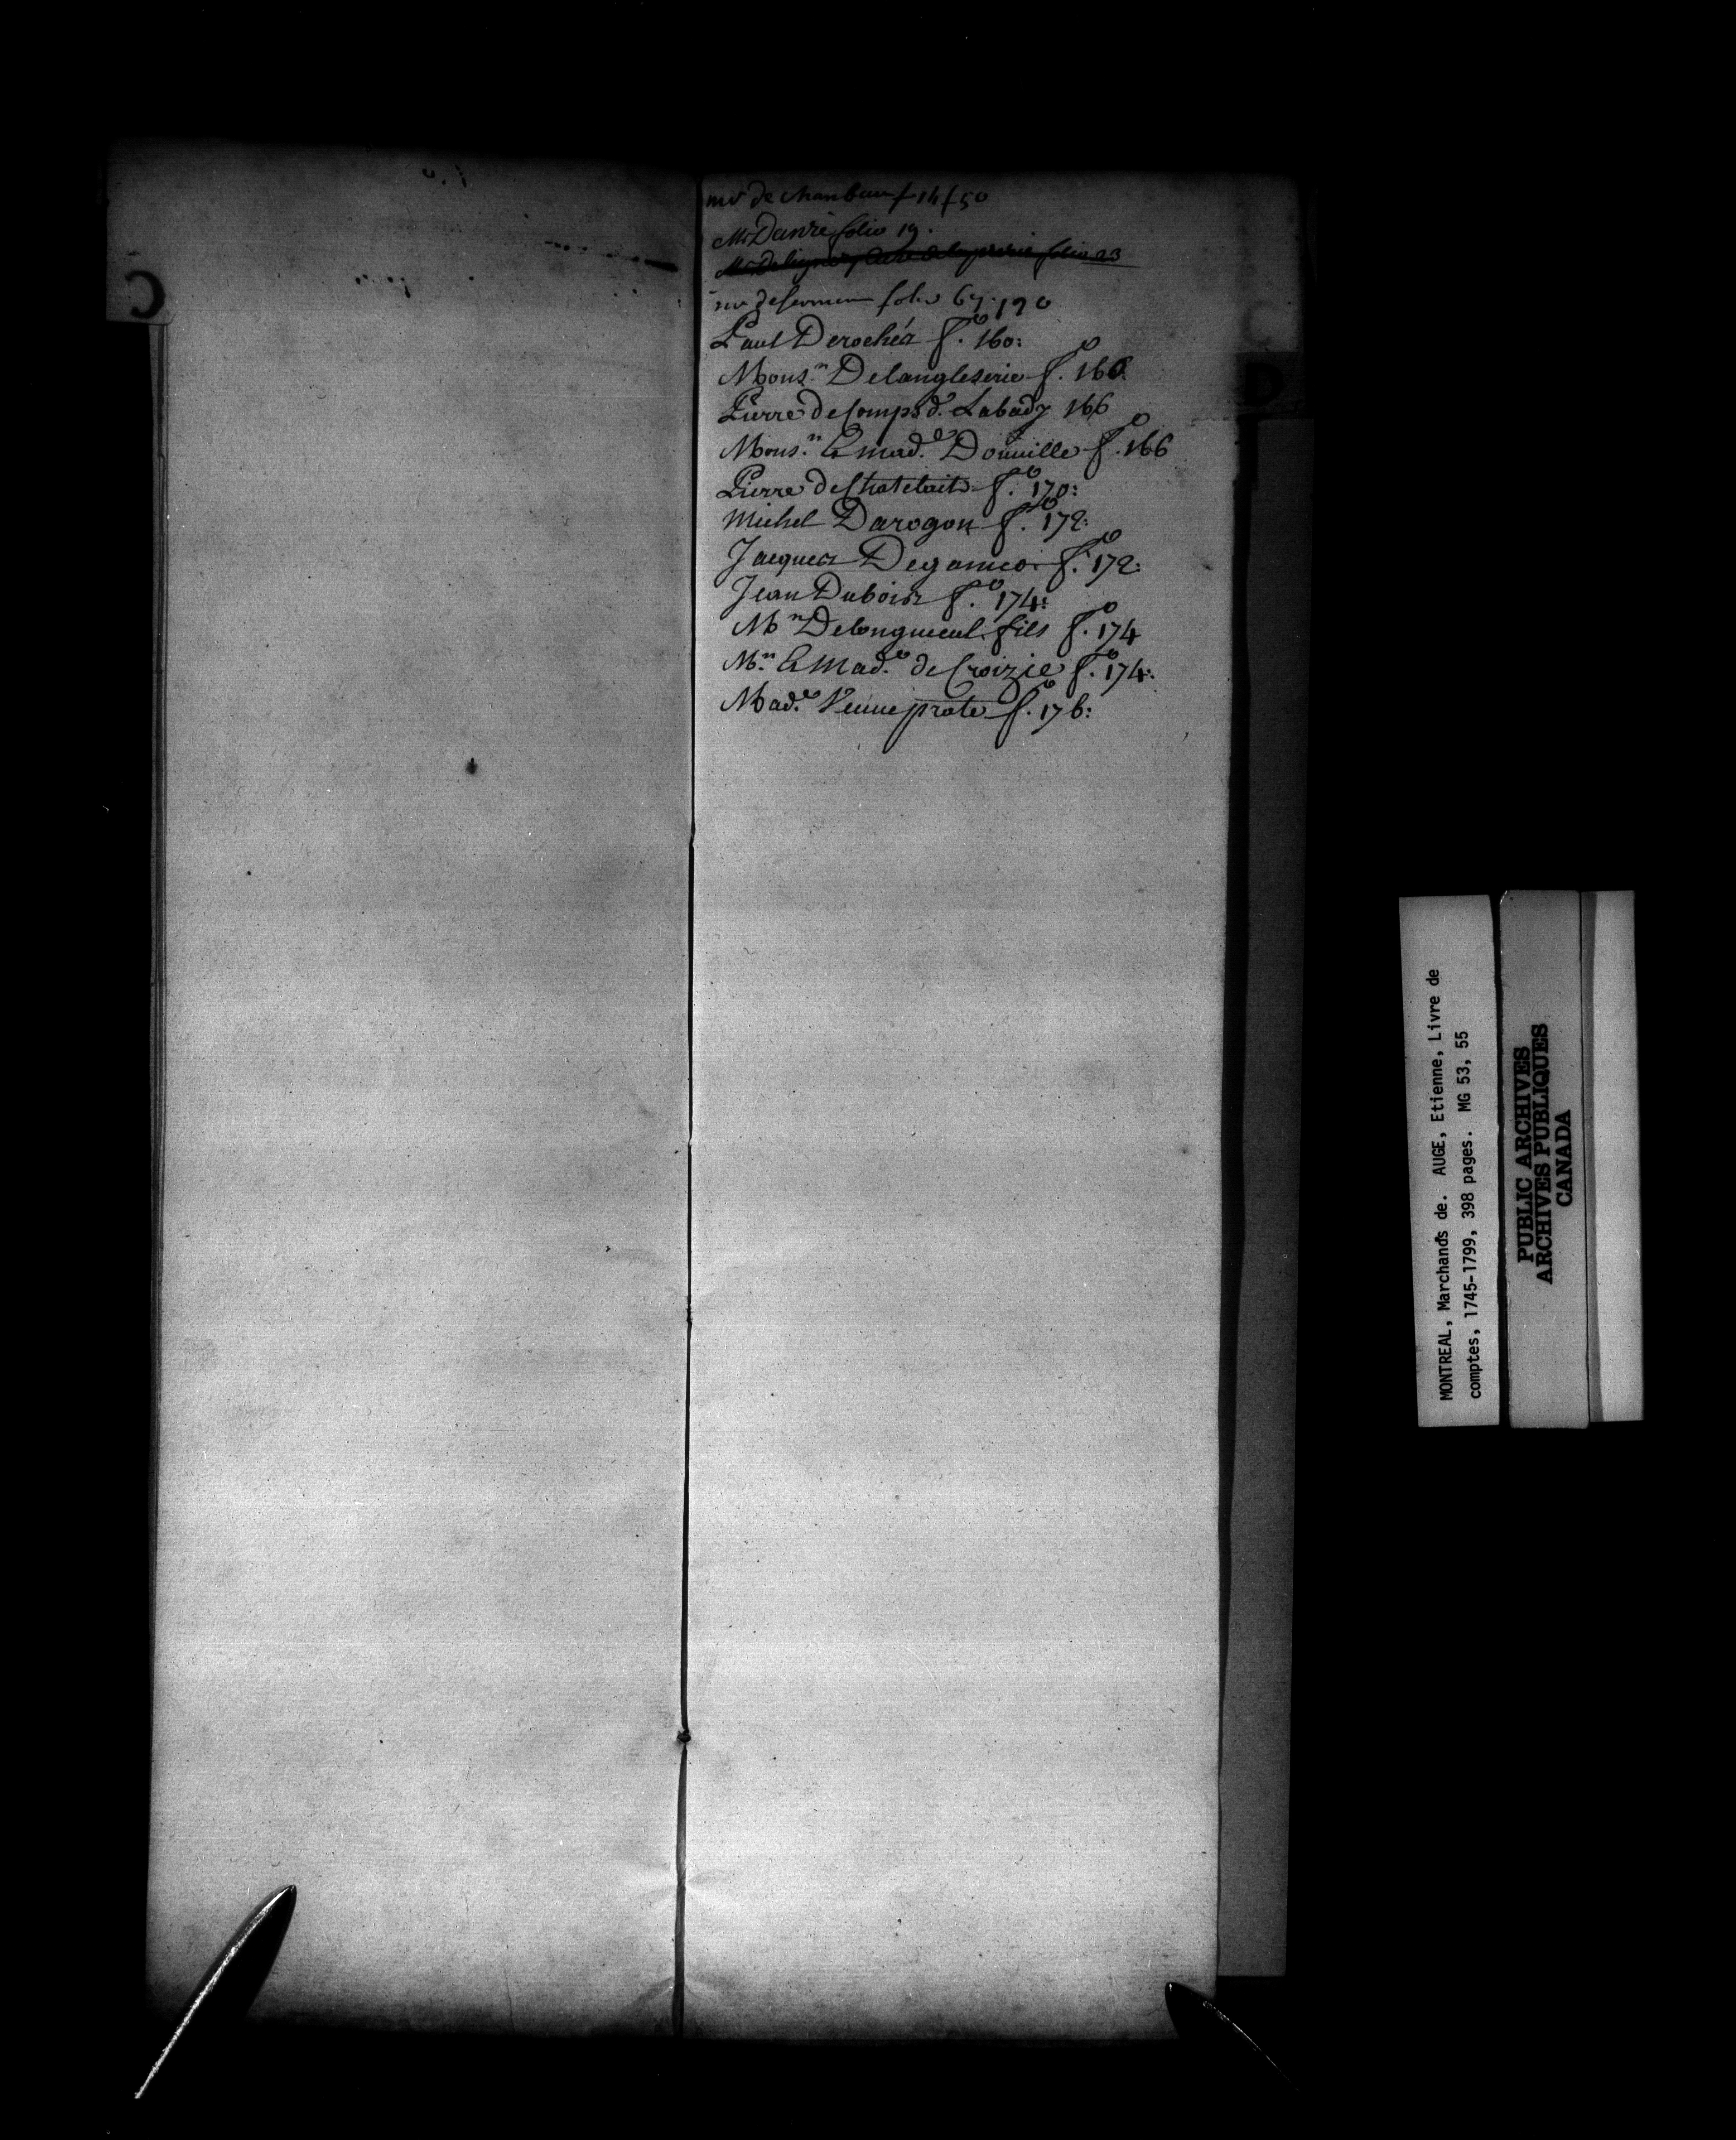 C
mr de Chanbeau f 14 f 50
Mr Danré folio 19.
folio 23
mr de folio 67. 190
Paul Derochéz fo. 160:
Monsr. Delangleserie fo. 166
Pierre deComps d. Labady 166
Monsr. & mad.e Douville fo. 166
Pierre deChatelait fo. 170:
Michel Darogon fo. 172:
Jacquez Deganico fo. 172:
Jean Duboisz fo. 174:
Mr Delongueuil fils fo. 174
Mr. & Mad.e de Croizie fo. 174:
Mad.e Veuve prate fo. 176:
D
MONTREAL, Marchands de. AUGE, Etienne, Livre de
comptes, 1745-1799, 398 pages. MG 53, 55
PUBLIC ARCHIVES
ARCHIVES PUBLIQUES
CANADA